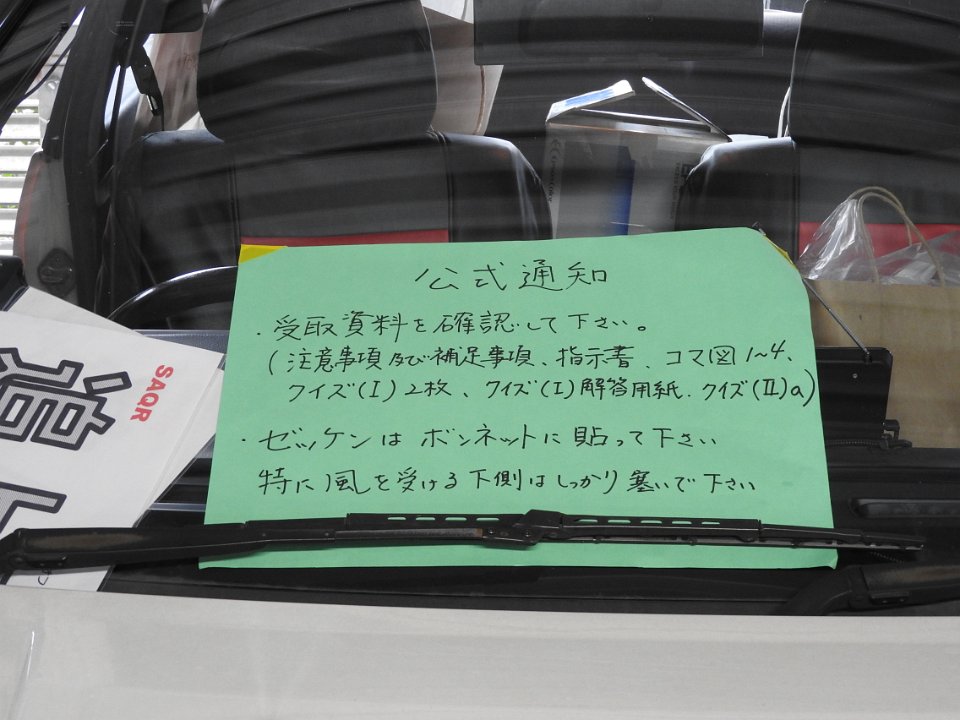 公式通知
・受取資料を確認して下さい。
(注意事項及び補足事項、指示書、コマ図1~4、
クイズ(I)2枚、クイズ(I)解答用紙、クイズ(II)a)
・ゼッケンはボンネットに貼って下さい
特に風を受ける下側はしっかり塞いで下さい
SAQR